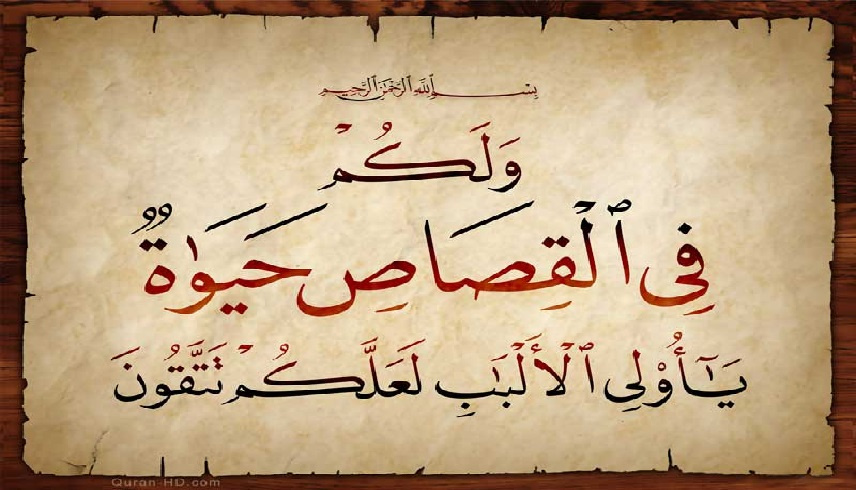 بِسْمِ ٱللَّهِ ٱلرَّحْمَٰنِ ٱلرَّحِيمِ
وَلَكُمْ
فِى ٱلْقِصَاصِ حَيَوٰةٌ
يَٰٓأُو۟لِى ٱلْأَلْبَٰبِ لَعَلَّكُمْ تَتَّقُونَ
Quran-HD.com